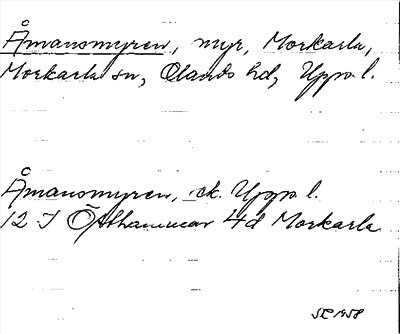 Åmansmyren, myr, Morkarla,
Morkarla sn, Olands hd, Upps. l.
Åmansmyren, ek. Upps. l.
12 I Östhammar 4d Morkarla
1958